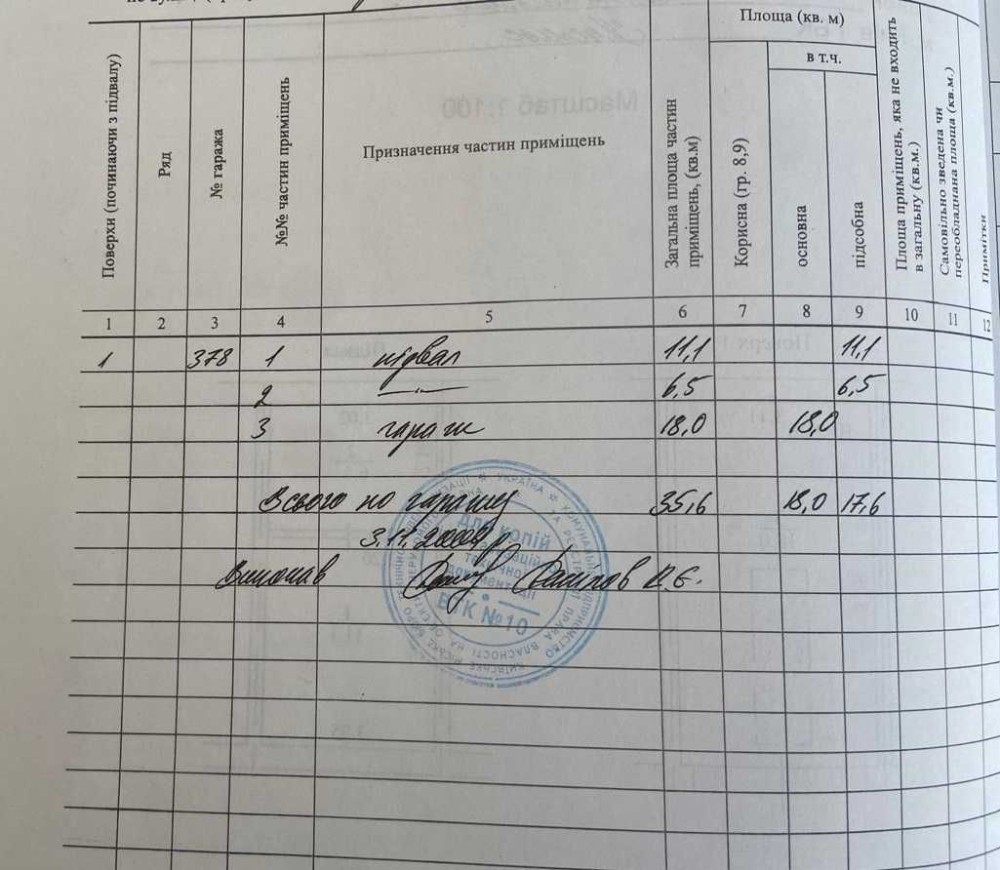 Поверхи (починаючи з підвалу)
Ряд
№ гаража
№№ частин приміщень
Призначення частин приміщень
Загальна площа частин приміщень, (кв.м)
Площа (кв. м)
Корисна (гр. 8,9)
в т.ч.
основна
підсобна
Площа приміщень, яка не входить в загальну (кв.м.)
Самовільно зведена чи переобладнана площа (кв.м.)
Примітки
1 2 3 4 5 6 7 8 9 10 11 12
1 378 1 підвал 11,1 11,1
2 —"— 6,5 6,5
3 гараж 18,0 18,0
Всього по гаражу 35,6 18,0 17,6
3.11.2000р.
Виконав
Для копій
технічної
документації
БТК №10
УКРАЇНА
Масштаб 1:100